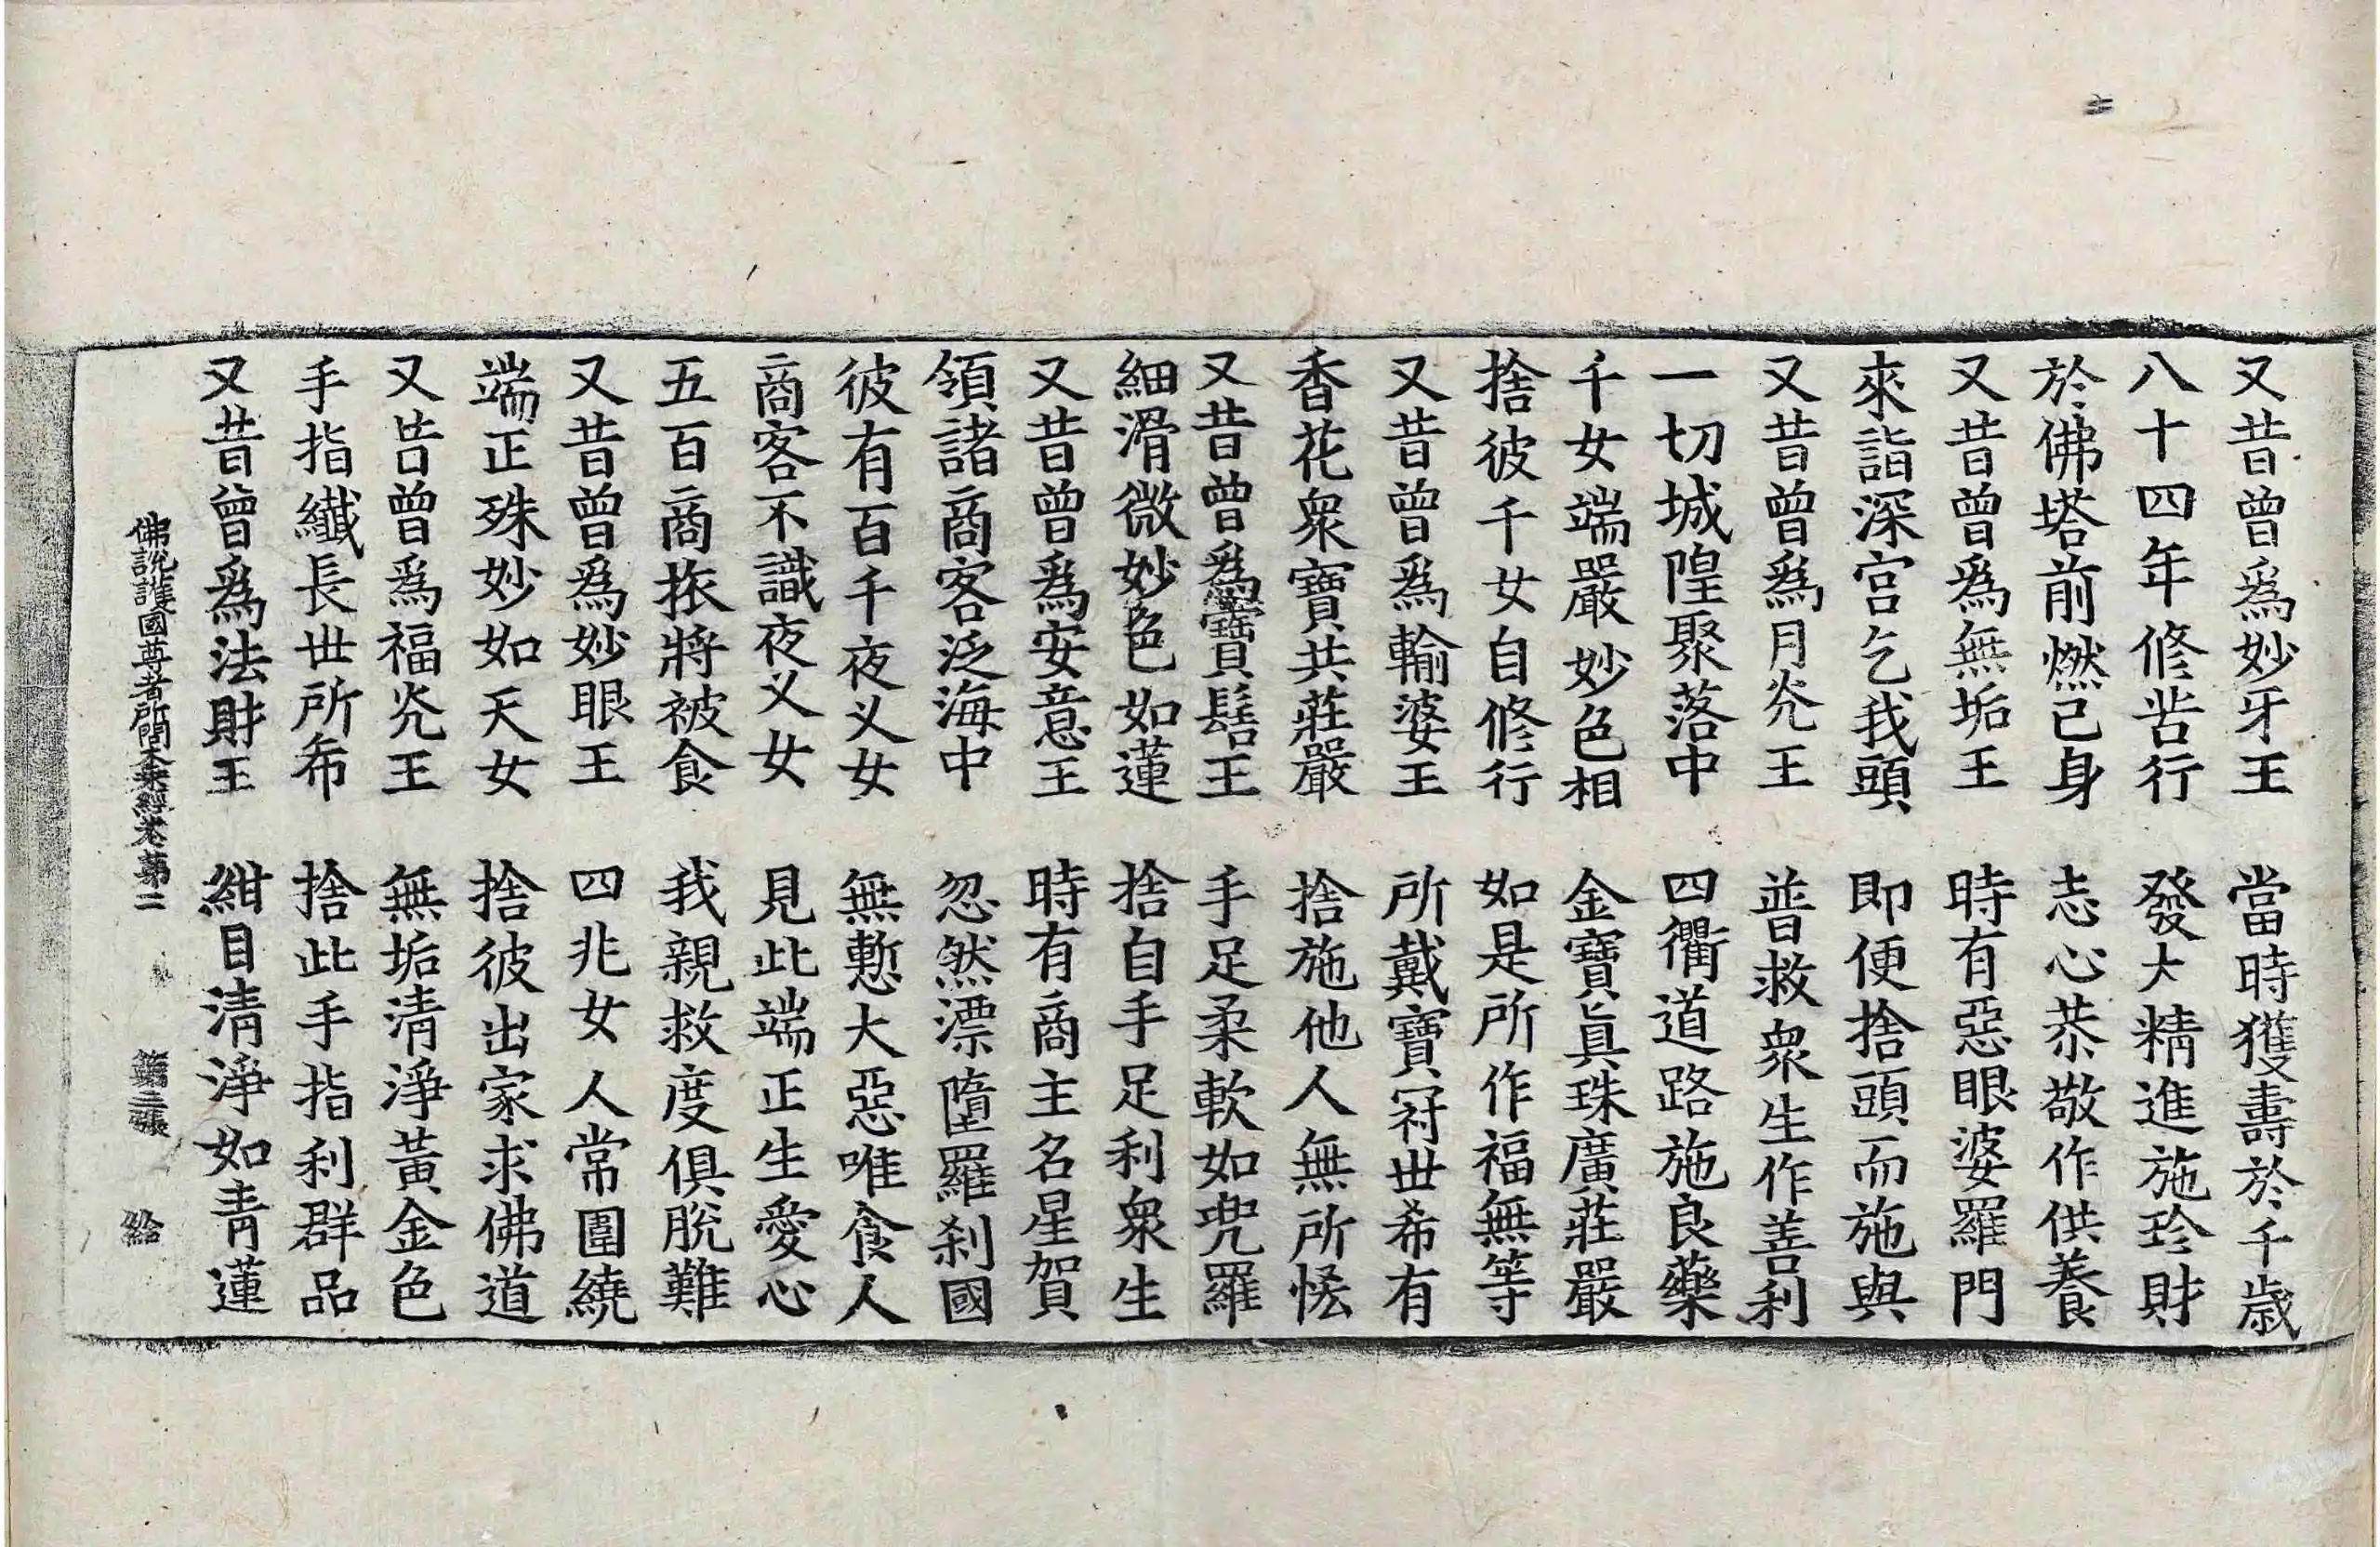 又昔曾爲妙牙王　當時獲壽於千歳
八十四年修苦行　發大精進施珍財
於佛塔前燃己身　志心恭敬作供養
又昔曾爲無垢王　時有惡眼婆羅門
來詣深宮乞我頭　即便捨頭而施與
又昔曾爲月光王　普救衆生作善利
一切城隍聚落中　四衢道路施良藥
千女端嚴妙色相　金寶眞珠廣莊嚴
捨彼千女自修行　如是所作福無等
又昔曾爲輸婆王　所戴寶冠世希有
香花衆寶共莊嚴　捨施他人無所恡
又昔曾爲寶髻王　手足柔軟如兜羅
細滑微妙色如蓮　捨自手足利衆生
又昔曾爲安意王　時有商主名星賀
領諸商客泛海中　忽然漂墮羅刹國
彼有百千夜叉女　無慙大惡唯食人
商客不識夜叉女　見此端正生愛心
五百商旅將被食　我親救度俱脫難
又昔曾爲妙眼王　四兆女人常圍繞
端正殊妙如天女　捨彼出家求佛道
又昔曾爲福光王　無垢清淨黃金色
手指纖長世所希　捨此手指利群品
又昔曾爲法財王　紺目清淨如青蓮
佛説護國尊者所問大乘經卷第二　第三張　給